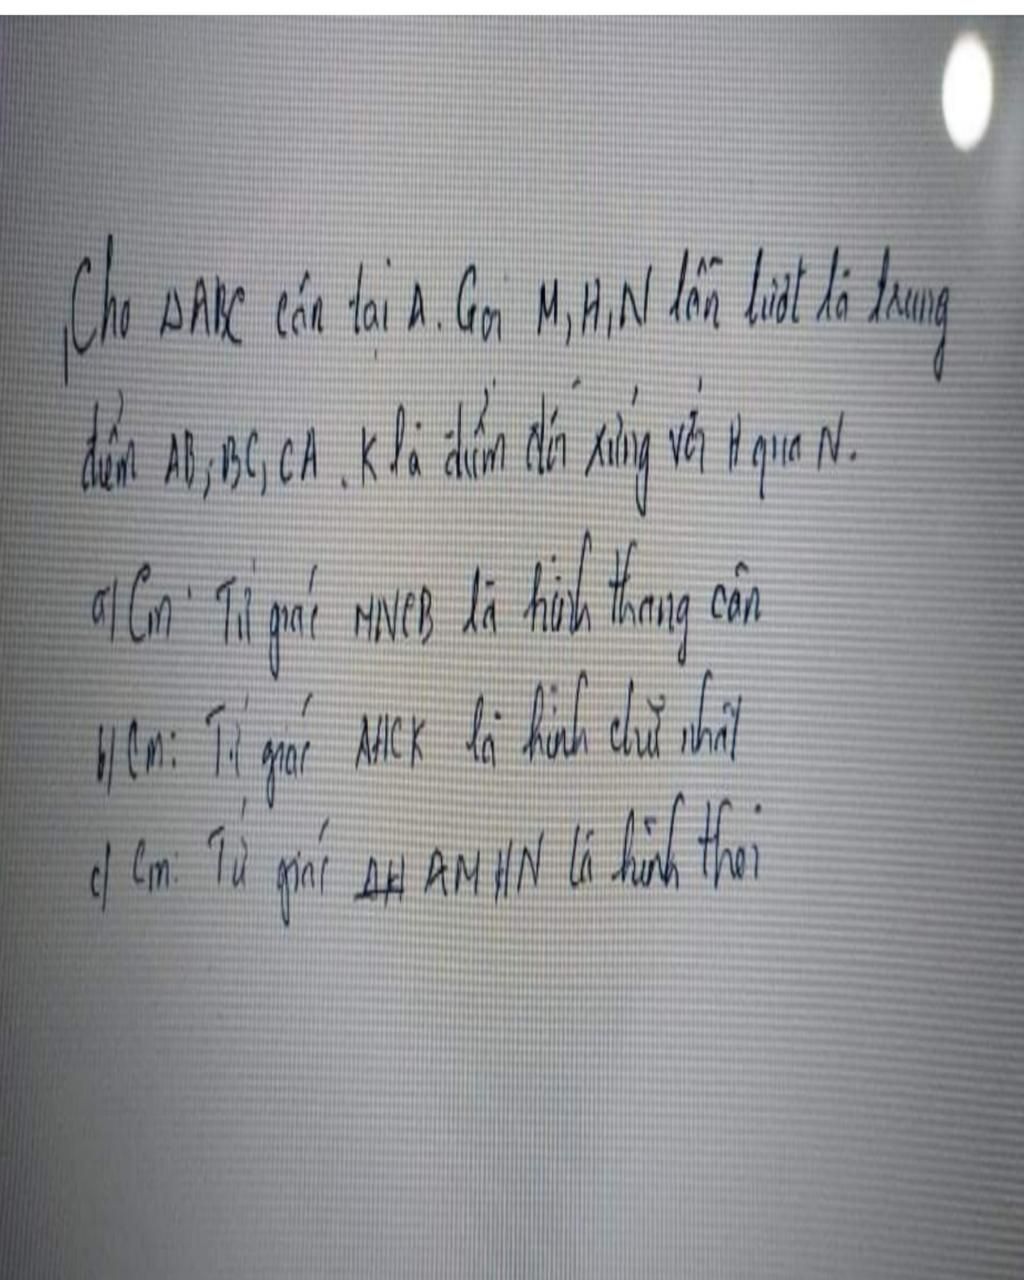 Cho ΔABC cân tại A. Gọi M, H, N lần lượt là trung
điểm AB, BC, CA. K là điểm đối xứng với H qua N.
a) Cm: Tứ giác MNCB là hình thang cân
b) Cm: Tứ giác AHCK là hình chữ nhật
c) Cm: Tứ giác AMHN là hình thoi